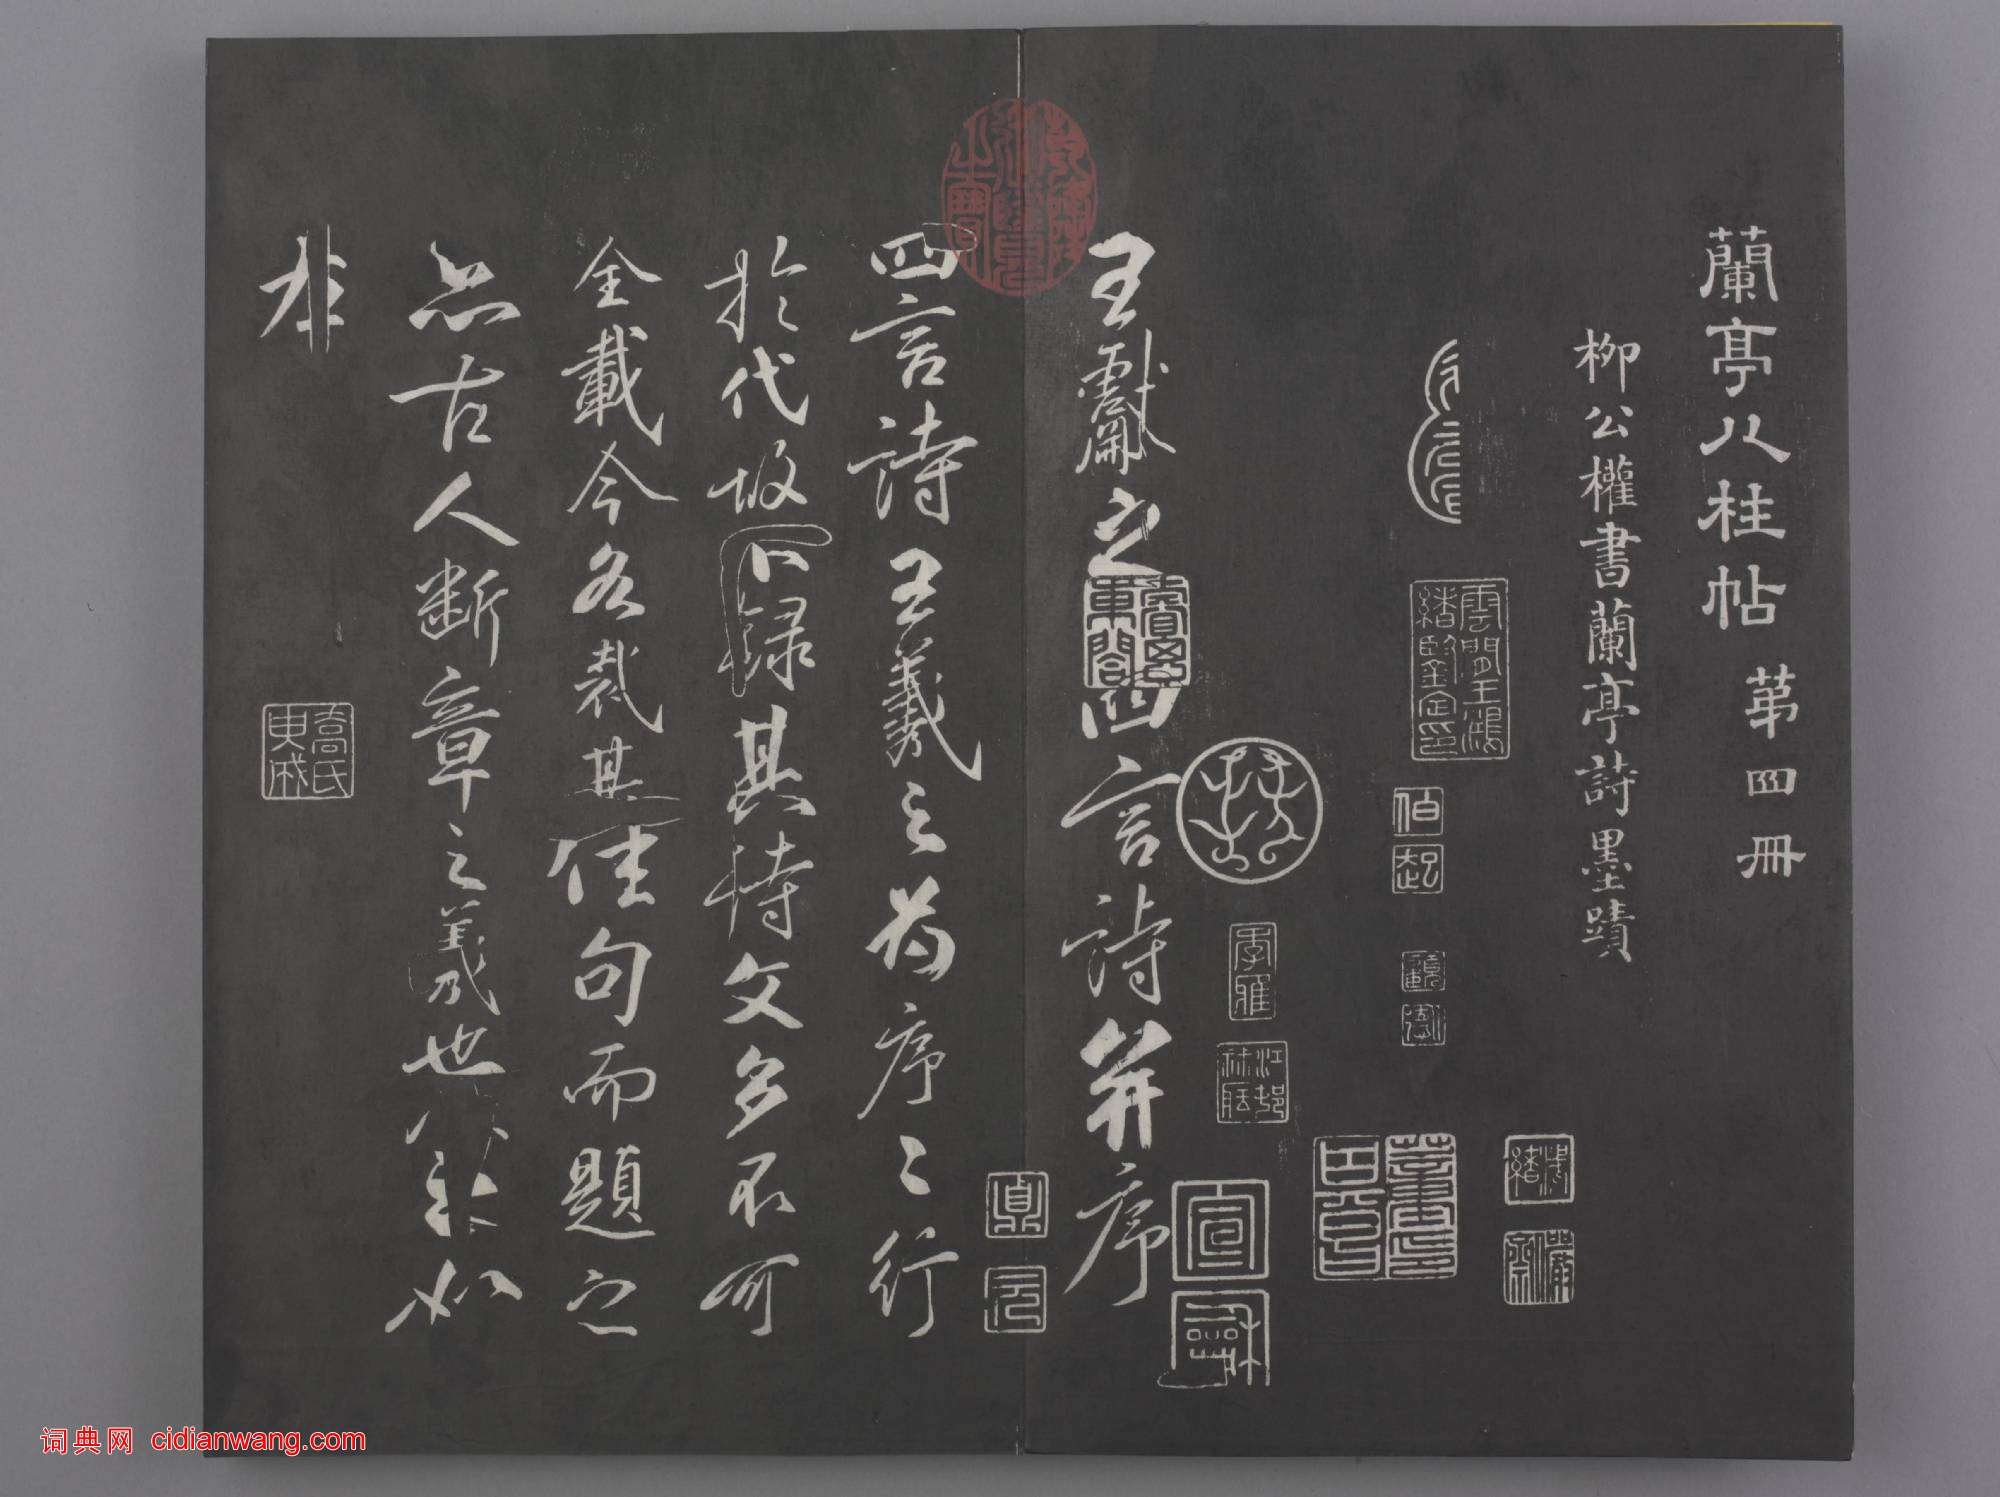 蘭亭八柱帖 第四冊
柳公權書蘭亭詩墨蹟
雲間王鴻緒鑒定印
伯起
季雅
宣龢
王獻之四言詩并序
四言詩王羲之為序〻行
於代故不錄其詩文多不可
全載今各裁其佳句而題之
亦古人斷章之義也 如
非
词典网 cidianwang.com